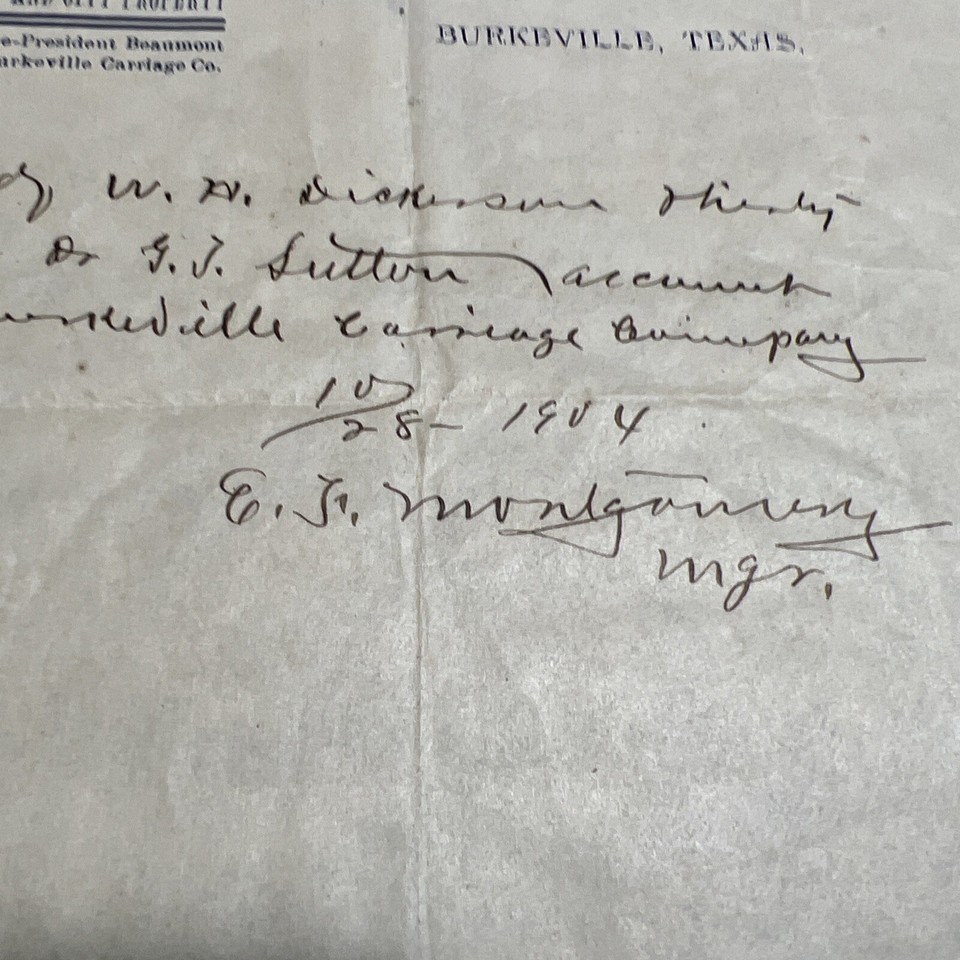 AND CITY PROPERTY
e-President Beaumont
urkeville Carriage Co.
BURKEVILLE, TEXAS,
W. W. Dickerson
Dr G. T. Sutton account
urkeville Carriage Company
10/28 - 1904
E. F. Montgomery
Mgr.